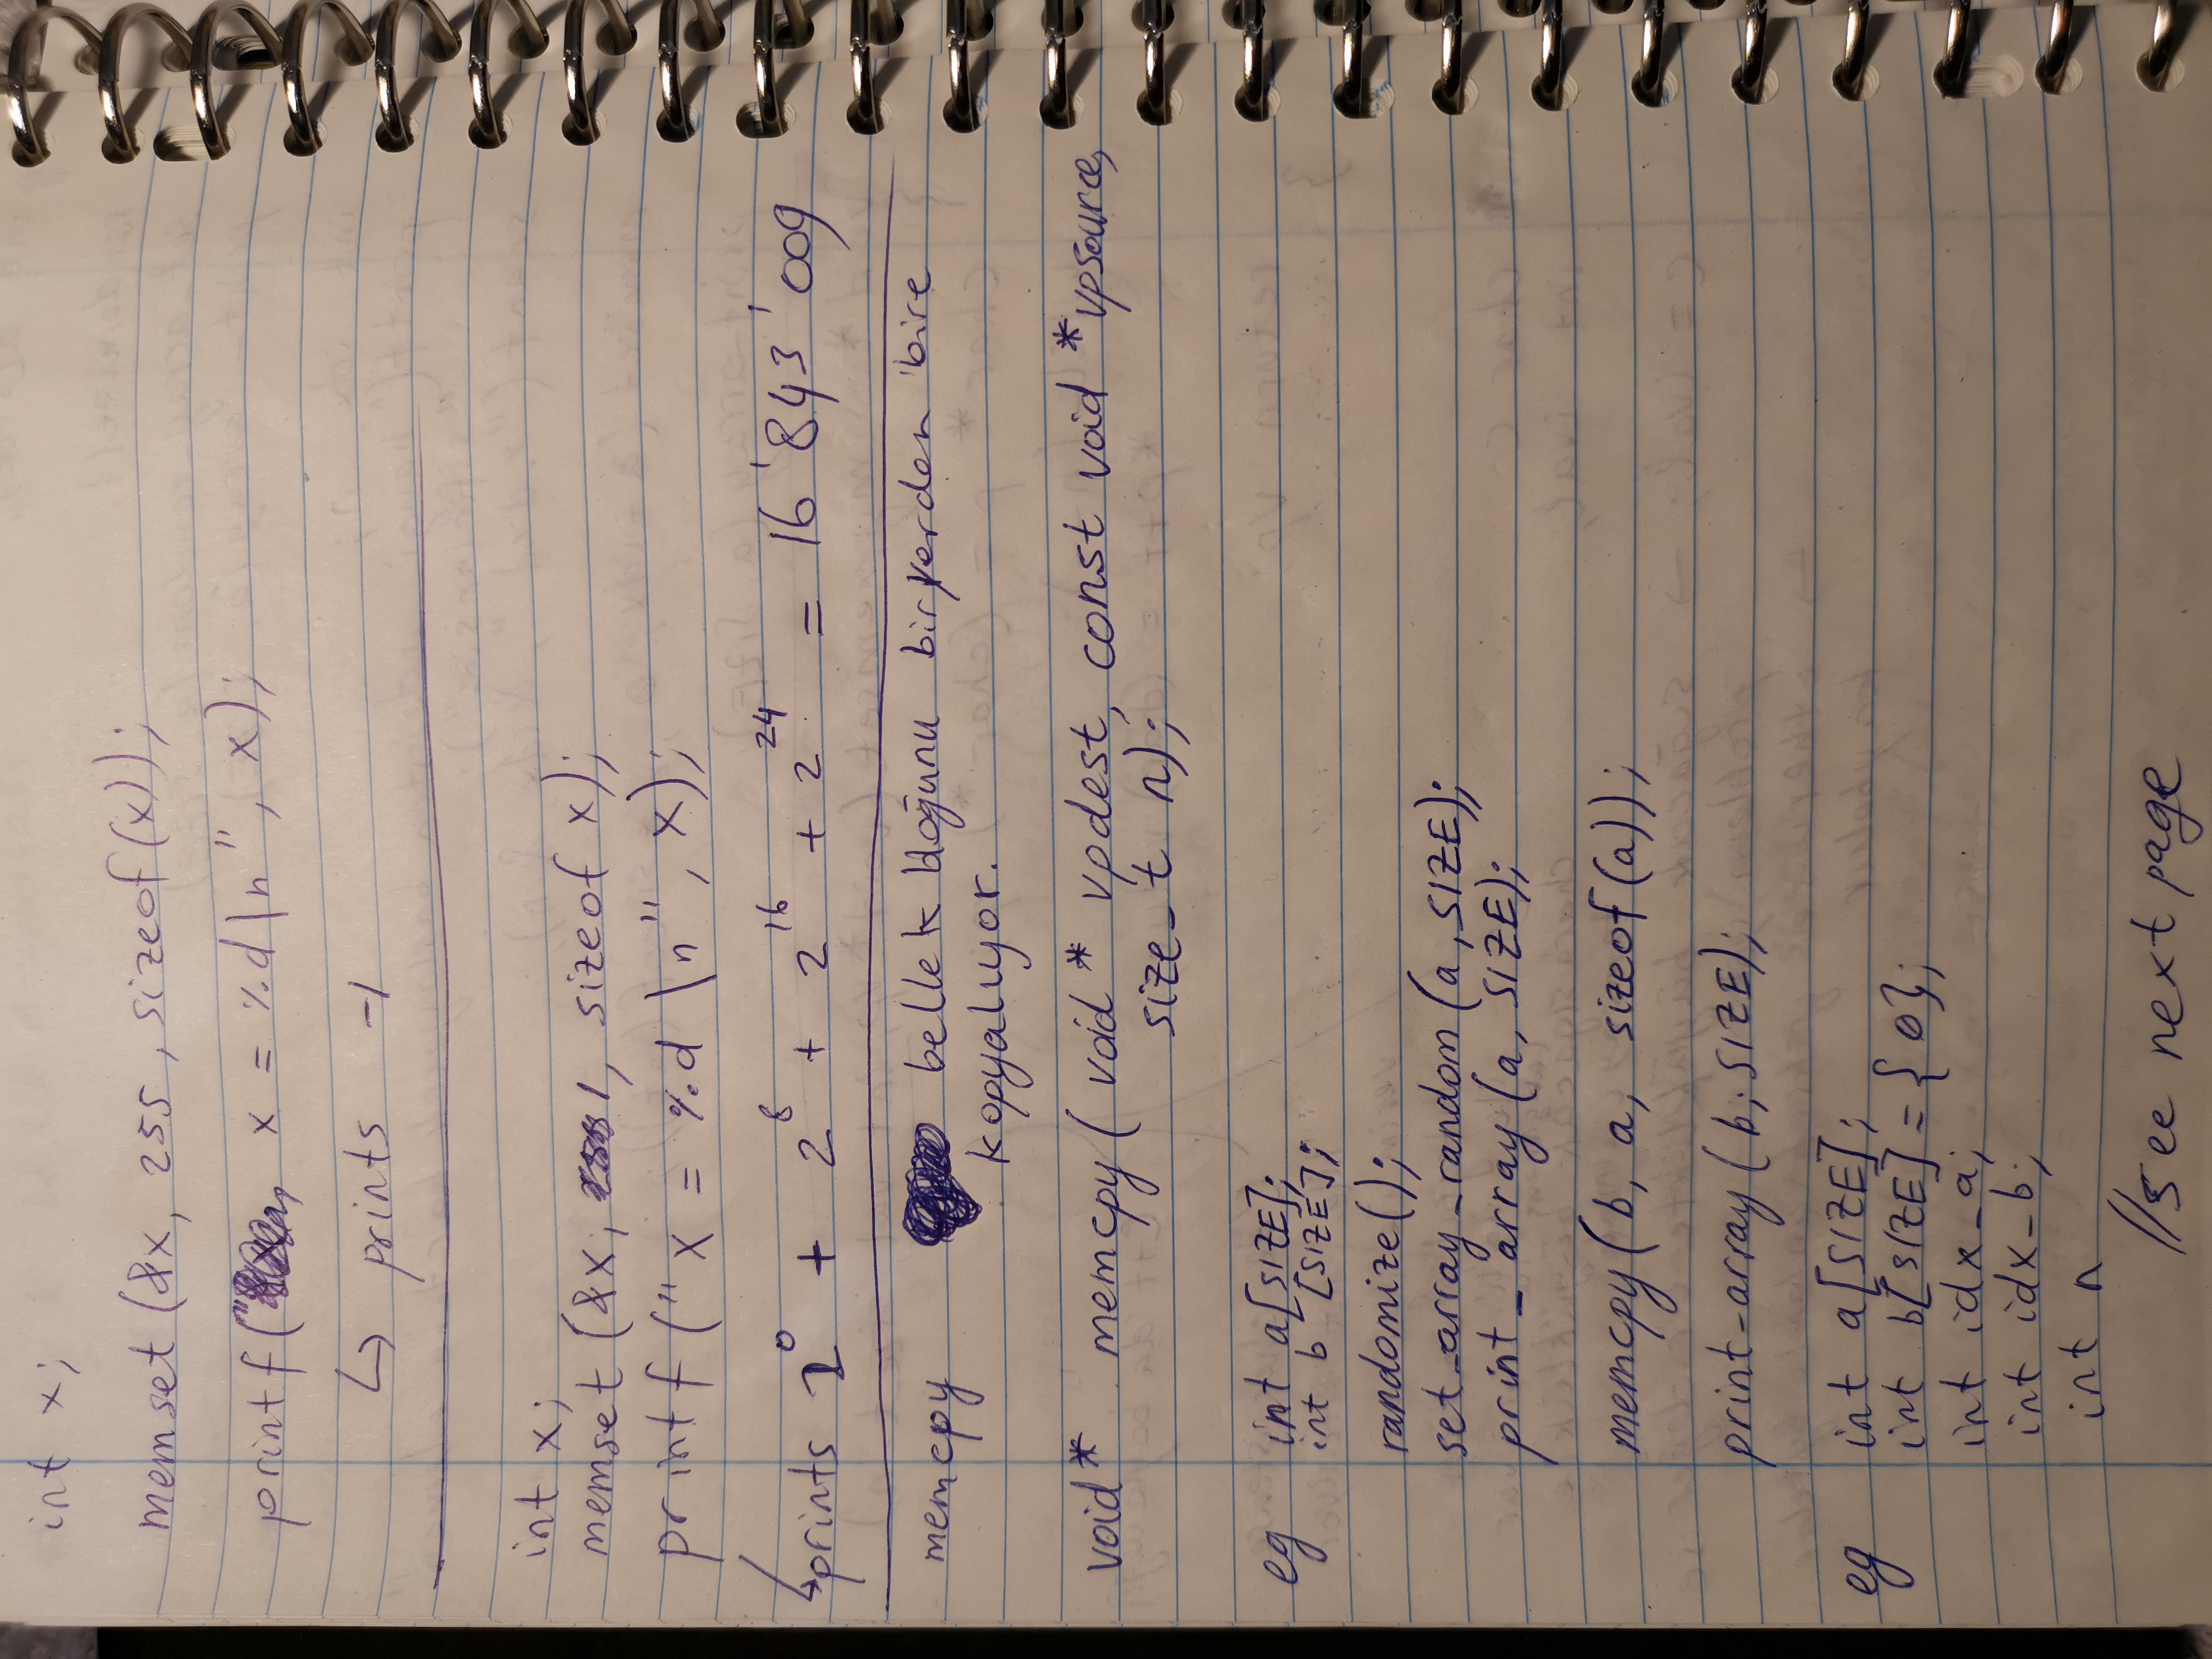 int x;
memset (&x, 255, sizeof(x));
printf(" x = %d\n", x);
↳ prints -1
int x;
memset (&x, 1, sizeof x);
printf ("x = %d \n", x);
↳ prints 2^0 + 2^8 + 2^16 + 2^24 = 16'843'009
memcpy bellek bloğunu bir yerden bire
kopyalıyor.
void* memcpy( void* vpdest, const void *vpsource,
size_t n);
eg int a[SIZE];
int b [SIZE];
randomize();
set_array_random (a, SIZE);
print_array (a, SIZE);
memcpy (b, a, sizeof(a));
print-array (b; SIZE);
eg int a[SIZE];
int b[SIZE] = {0};
int idx_a;
int idx_b;
int n
//see next page